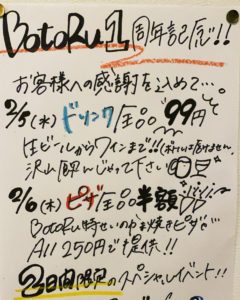 BotoRu 1周年記念!!
お客様への感謝を込めて…。
2/5(水)ドリンク全品99円
生ビールからワインまで!!(ボトルは除けません
沢山飲んじゃって下さい
2/6(木)ピザ全品半額
BotoRu特せいのかま焼きピザで
All 250円で提供!!
2日間限定のスペシャルイベント!!